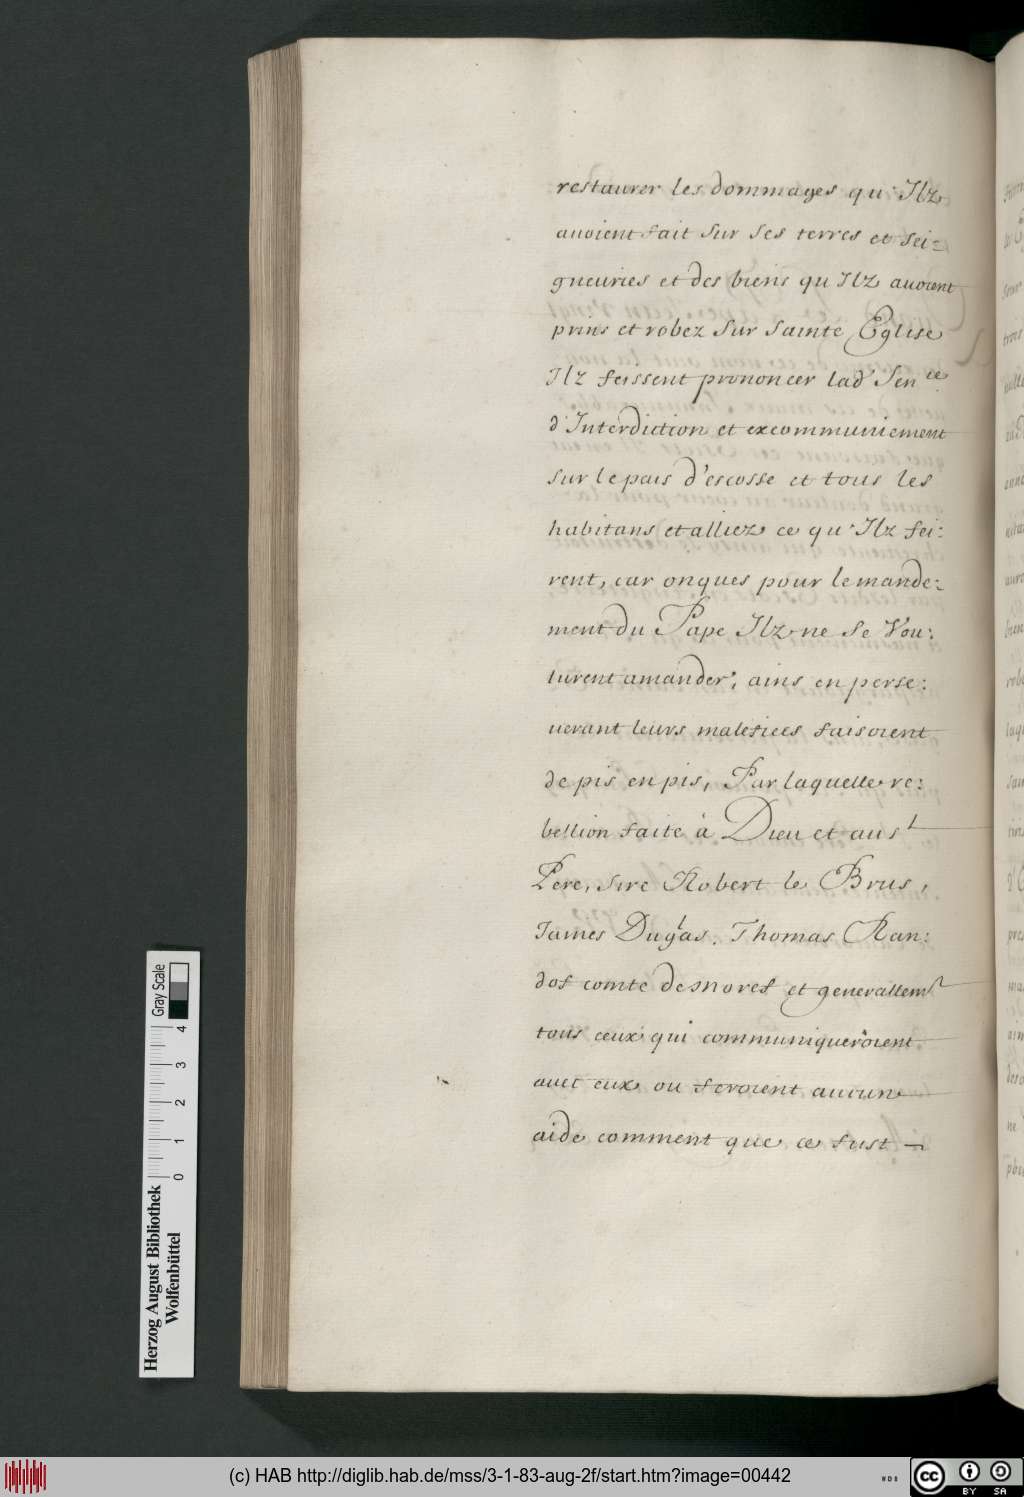 restaurer les dommages qu'Ilz
auoient fait sur ses terres et sei=
gneuries et des biens qu Ilz auoient
prins et robez sur sainte Eglise
Ilz feissent prononcer lad' Sen.ce
d'Interdiction et excommuniement
sur le pais d'escosse et tous les
habitans et alliez ce qu'Ilz fei:
rent, car onques pour le mande:
ment du Pape Ilz ne se Vou:
lurent amander, ains en perse:
uerant leurs malefices faisoient
de pis en pis, Par laquelle re:
bellion faite à Dieu et au st
Pere, sire Robert le Brus,
James Duglas. Thomas Ran:
dof comte de moref et generallemt
tous ceux qui communiqueroient
auec eux ou feroient aucune
aide comment que ce fust —
Herzog August Bibliothek
Wolfenbüttel
Gray Scale
0 1 2 3 4
(c) HAB http://diglib.hab.de/mss/3-1-83-aug-2f/start.htm?image=00442
WDB
cc BY SA